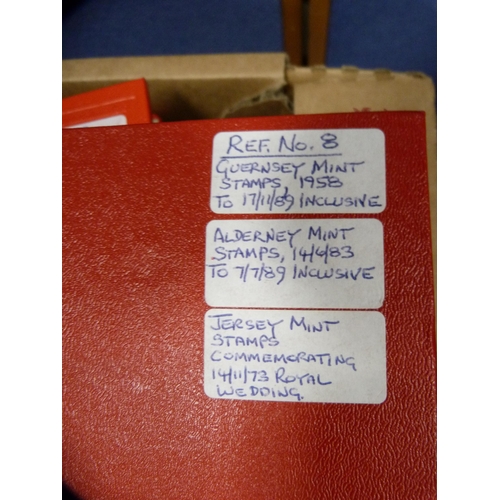 REF. NO. 8
GUERNSEY MINT
STAMPS, 1958
TO 17/11/89 INCLUSIVE
ALDERNEY MINT
STAMPS, 14/4/83
TO 7/7/89 INCLUSIVE
JERSEY MINT
STAMPS
COMMEMORATING
14/11/73 ROYAL
WEDDING.